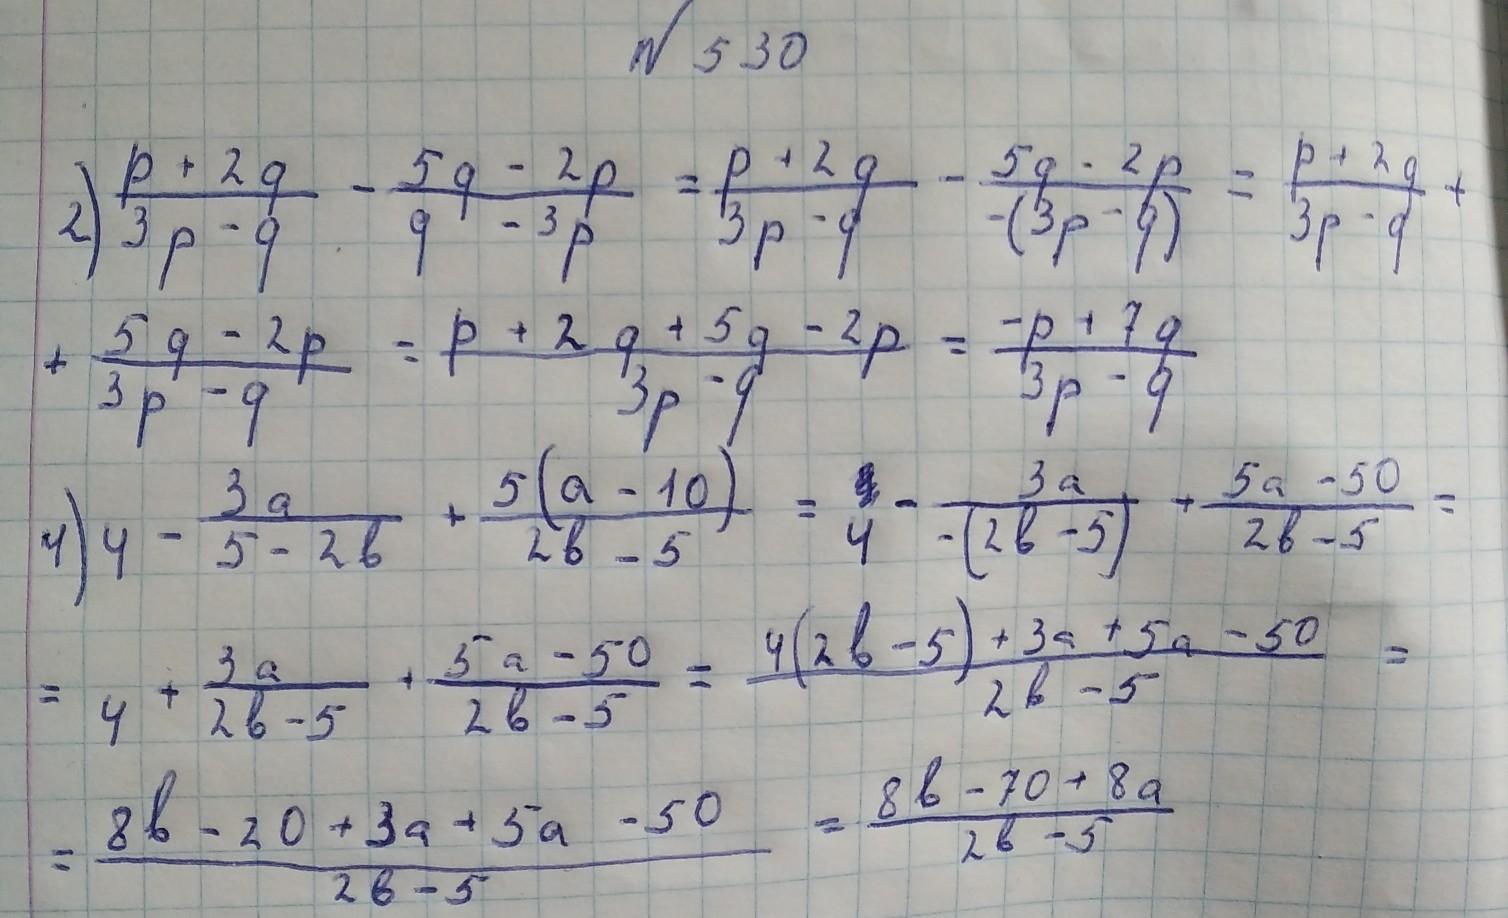 № 530
2) \frac{p + 2q}{3p - q} - \frac{5q - 2p}{q - 3p} = \frac{p + 2q}{3p - q} - \frac{5q - 2p}{-(3p - q)} = \frac{p + 2q}{3p - q} +
+ \frac{5q - 2p}{3p - q} = \frac{p + 2q + 5q - 2p}{3p - q} = \frac{-p + 7q}{3p - q}
4) 4 - \frac{3a}{5 - 2b} + \frac{5(a - 10)}{2b - 5} = 4 - \frac{3a}{-(2b - 5)} + \frac{5a - 50}{2b - 5} =
= 4 + \frac{3a}{2b - 5} + \frac{5a - 50}{2b - 5} = \frac{4(2b - 5) + 3a + 5a - 50}{2b - 5} =
= \frac{8b - 20 + 3a + 5a - 50}{2b - 5} = \frac{8b - 70 + 8a}{2b - 5}